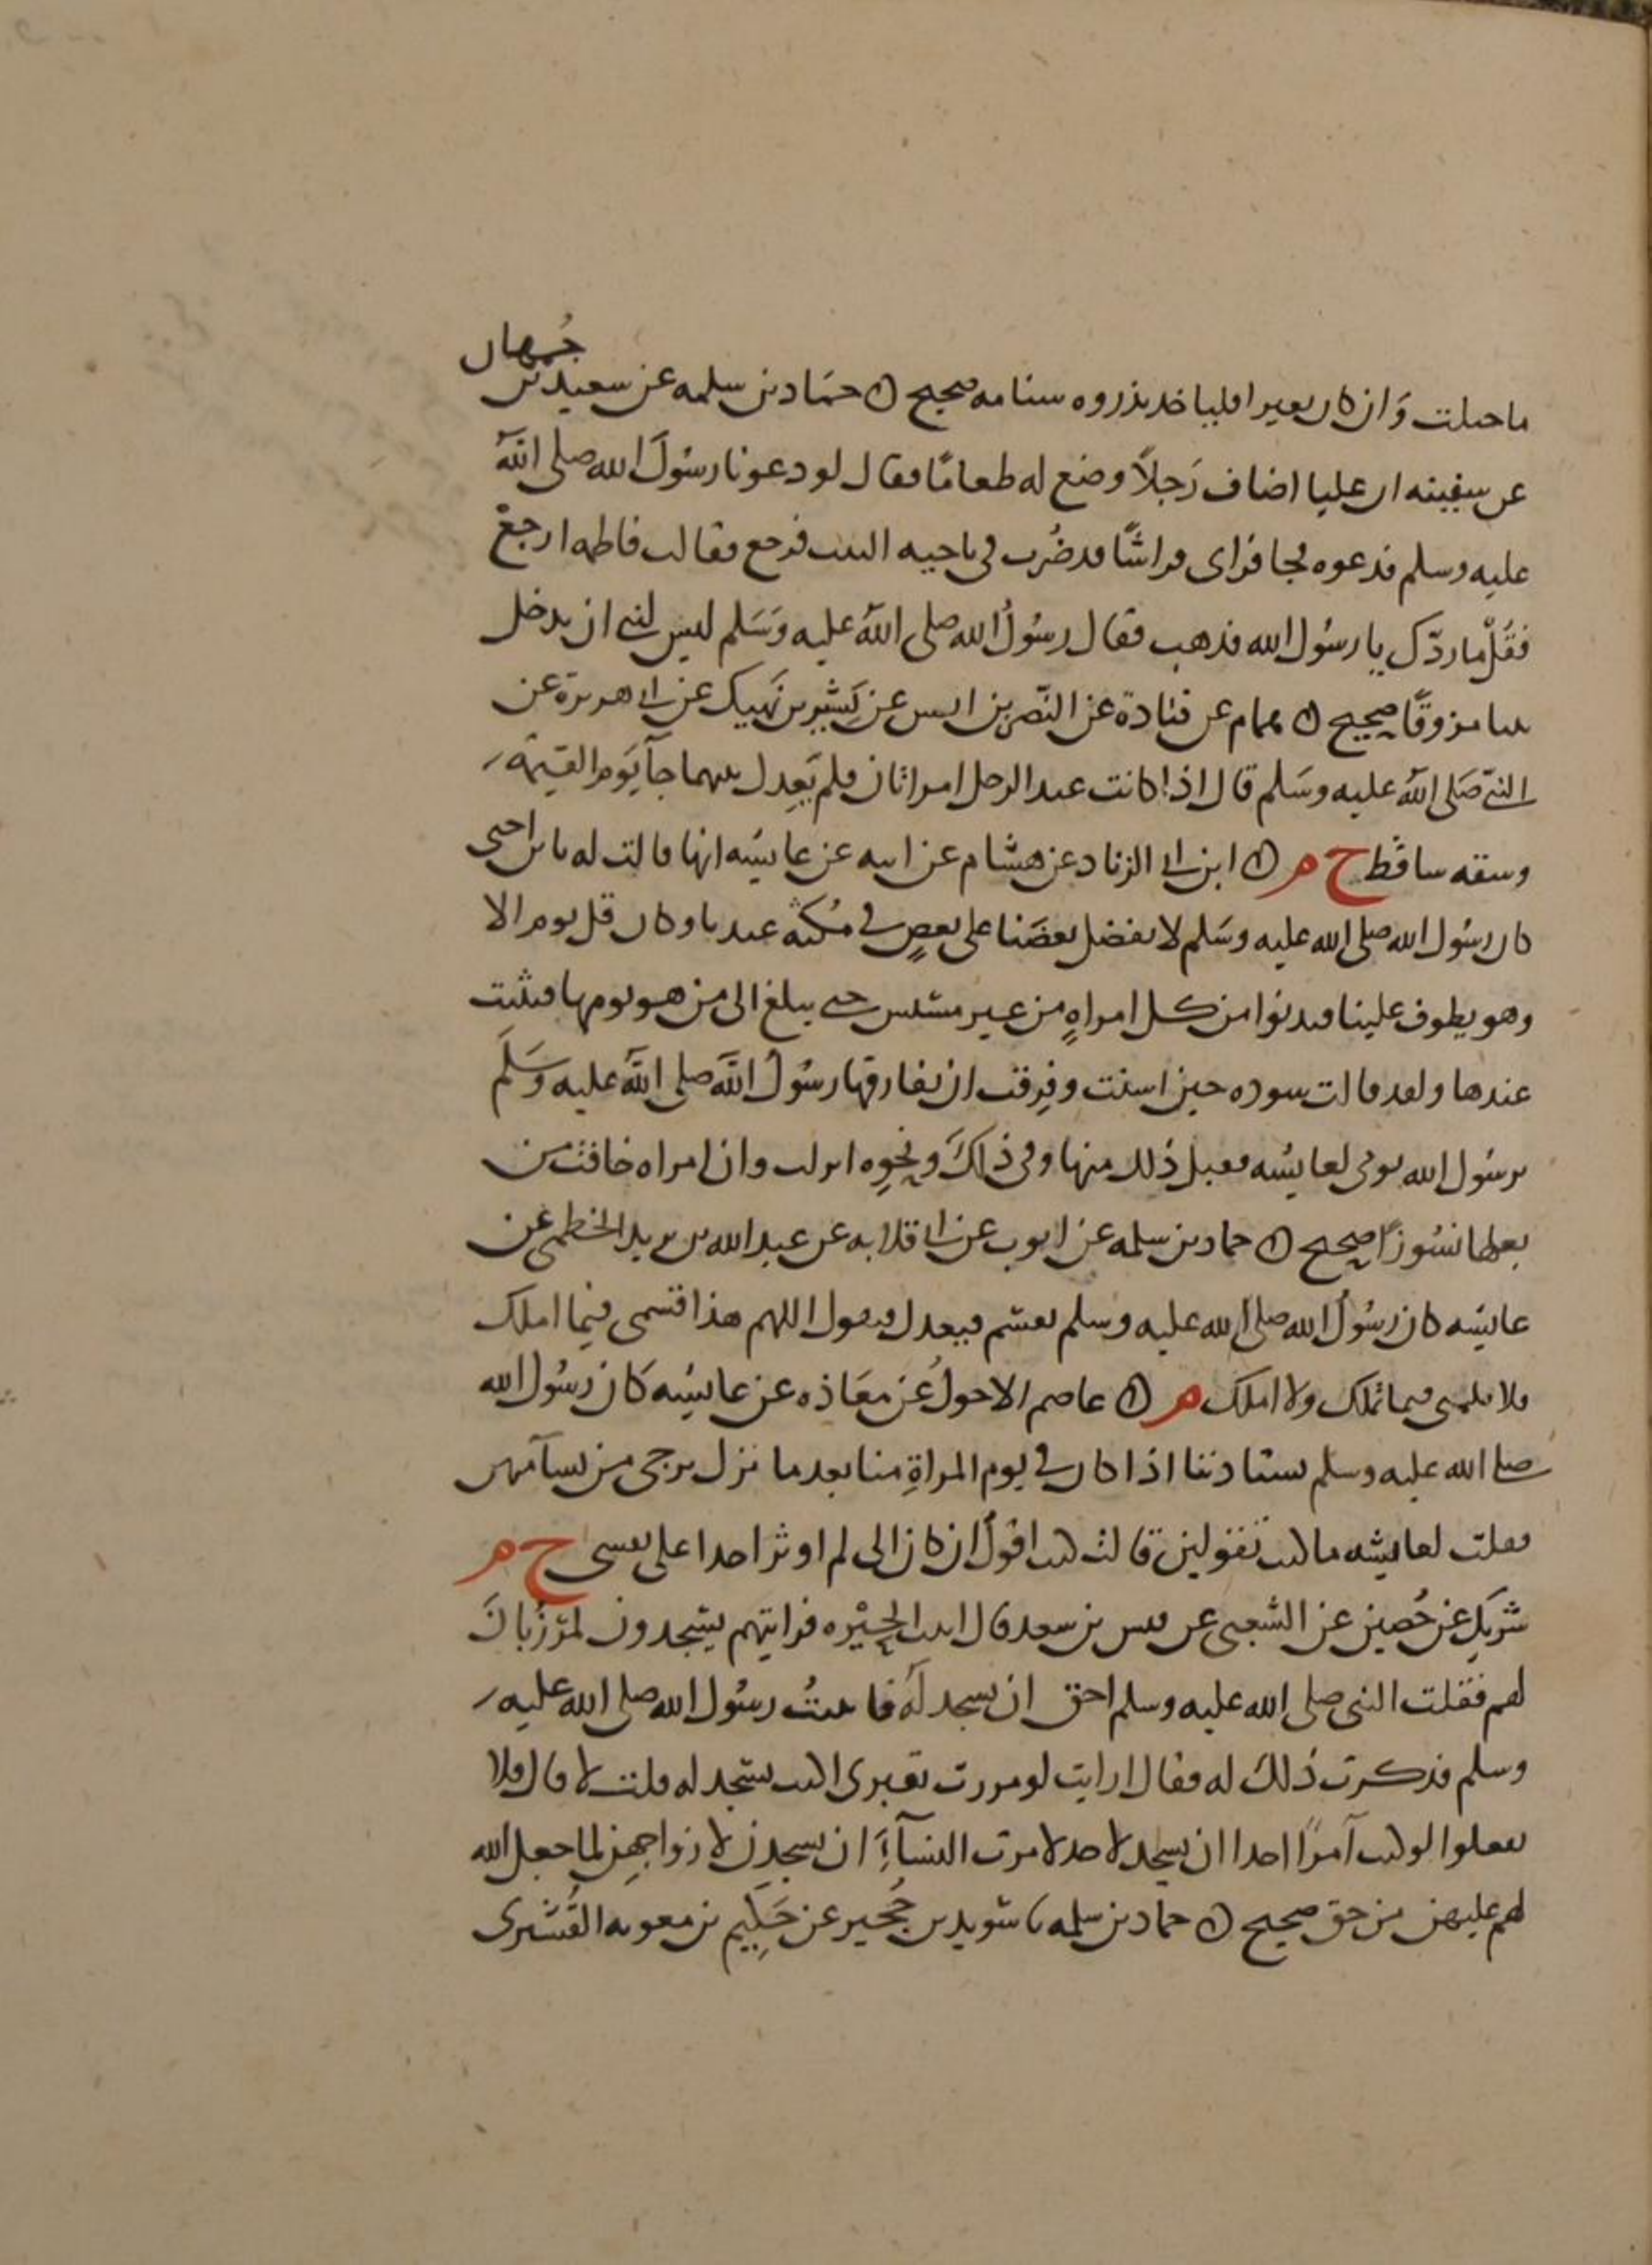 جُمهان
ما جبلت وَان كان بعيرا فلياخذ بذروه سنامه صحيح ۞ حمَاد بن سلمه عن سعيد بن
عن سفينه ان عليا اضاف رَجلاً وضع له طعامًا فقال لو دعونا رسُولَ الله صلى اللهُ
عليه وسلم فدعوه فجا فراى فراشًا قد ضُرب في ناحيه البيت فرجع فقالت فاطمه ارجعْ
فقُلْ ما ردّك يا رسُول الله فذهب فقال رسُولُ الله صلى اللهُ عليه وَسَلم ليس لنبي ان يدخل
بيتا مزوقًا صحيح ۞ همام عن قتادة عن النّضر بن انس عن بَشير بن نَهيك عن ابي هريرة عن
النبيّ صَلى اللهُ عليه وسَلم قال اذا كانت عند الرجل امراتان فلم يَعدِل بينهما جآ يَوم القيمه
وشقه ساقط ح م ۞ ابن ابي الزناد عن هشام عن ابيه عن عايشه انها قالت له يا بن اختي
كان رسُول الله صلى الله عليه وسَلم لا يفضل بعضَنا على بعضٍ في مُكثه عندنا وكان قل يوم الا
وهو يطوف علينا فيدنوا من كل امراهٍ من غير مسيس حتى يبلغ الى من هو يومها فيثبت
عندها ولقد قالت سوده حين اسنت وفرِقت ان يفارقها رسُولُ الله صلى اللهُ عليه وسَلم
يرسُول الله يومي لعايشه فقبل ذلك منها وفي ذَلكَ ونحوِه انزلت وان امراه خافت من
بعلها نشُوزًا صحيح ۞ حماد بن سلمه عن ايوب عن ابي قلابه عن عبد الله بن يزيد الخطمي عن
عايشه كان رسُولُ الله صلى الله عليه وسلم يقسم فيعدل فيقول اللهم هذا قسمي فيما املك
فلا تلمني فيما تملك ولا املك م ۞ عاصم الاحول عَن معَاذه عن عايشه كَان رسُول الله
صلى الله عليه وسلم يستاذننا اذا كان في يوم المراةِ منا بعد ما نزل ترجى من تشآ منهن
فقلت لعايشه ما كنت تقولين قالت كنت اقولُ ان كان الى لم اوثر احدا على نفسي ح م
شريك عن حُصين عن الشعبي عن قيس بن سعد قال اتيت الحِيْره فرايتهم يسجدون لمَرْزُبانَ
لهم فقلت النبي صلى الله عليه وسلم احق ان يسجد لَهُ فاتيتُ رسُول الله صلى الله عليه
وسلم فذكرت ذلك له فقال ارايت لو مررت بقبرى اكنت تسجد له قلت لا قال فلا
تفعلوا لو كنت آمرًا احدا ان يسجد لاحد لامرت النسآءَ ان يسجدن لازواجهِن لما جعل الله
لهم عليهن من حق صحيح ۞ حماد بن سلمه نا سُويد بن حُجير عن حَكِيم بن معويه القُشَيرى